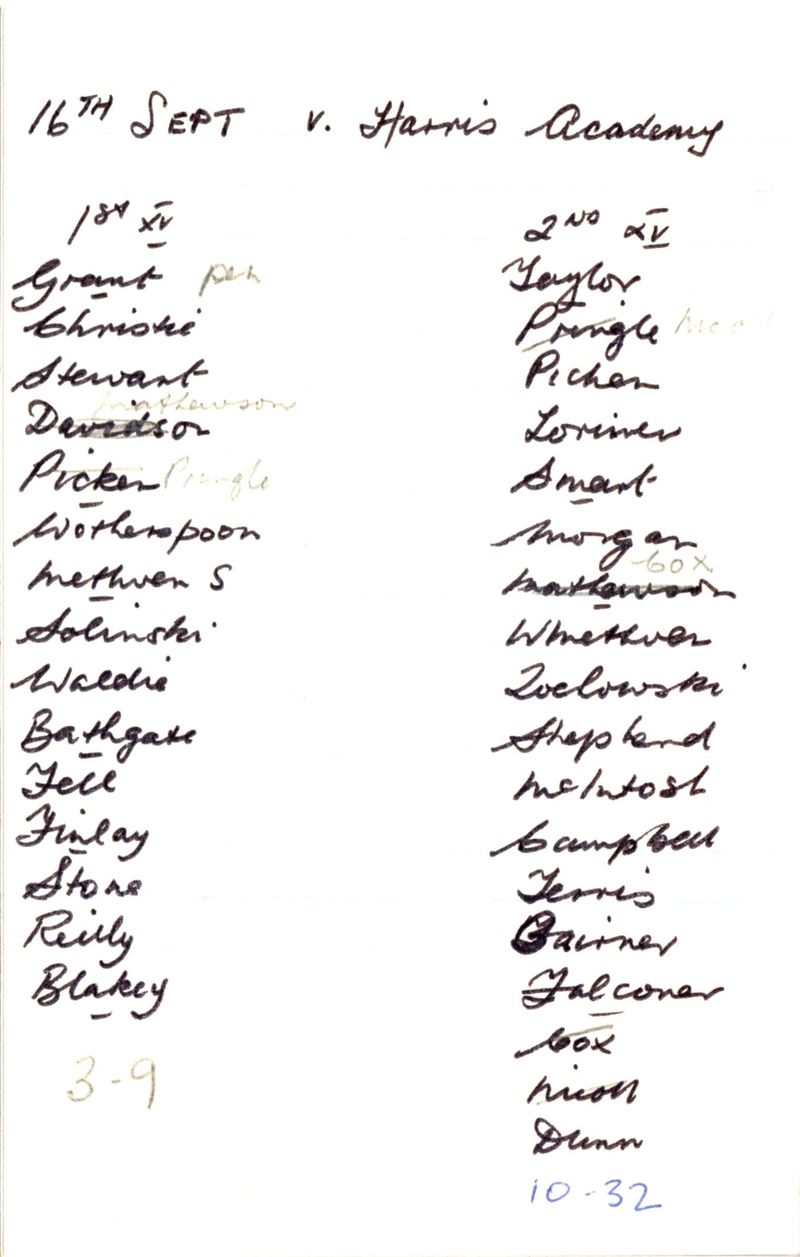 16TH SEPT v. Harris Academy
1st XV
Grant pen
Christie
Stewart
Mathewson
Davidson
Picken Pringle
Wotherspoon
Methven S
Solinski
Waldie
Bathgate
Fell
Finlay
Stone
Reilly
Blakey
3-9
2ND XV
Taylor
Pringle Nicoll
Picken
Lorimer
Smart
Morgan
Cox
Mathewson
W Methven
Shepherd
McIntosh
Campbell
Ferris
Cairner
Falconer
Cox
Nicoll
Dunn
10-32